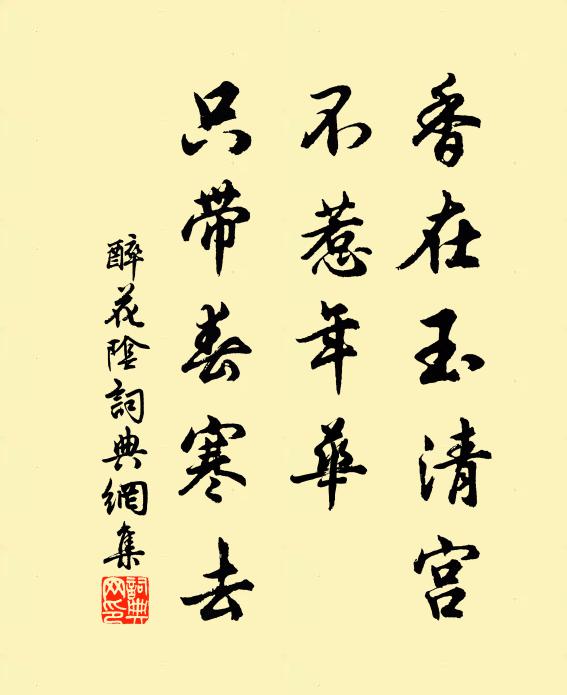 香在玉清宫
不惹年華
只带春寒去
醉花陰詞典網集
詞典网印